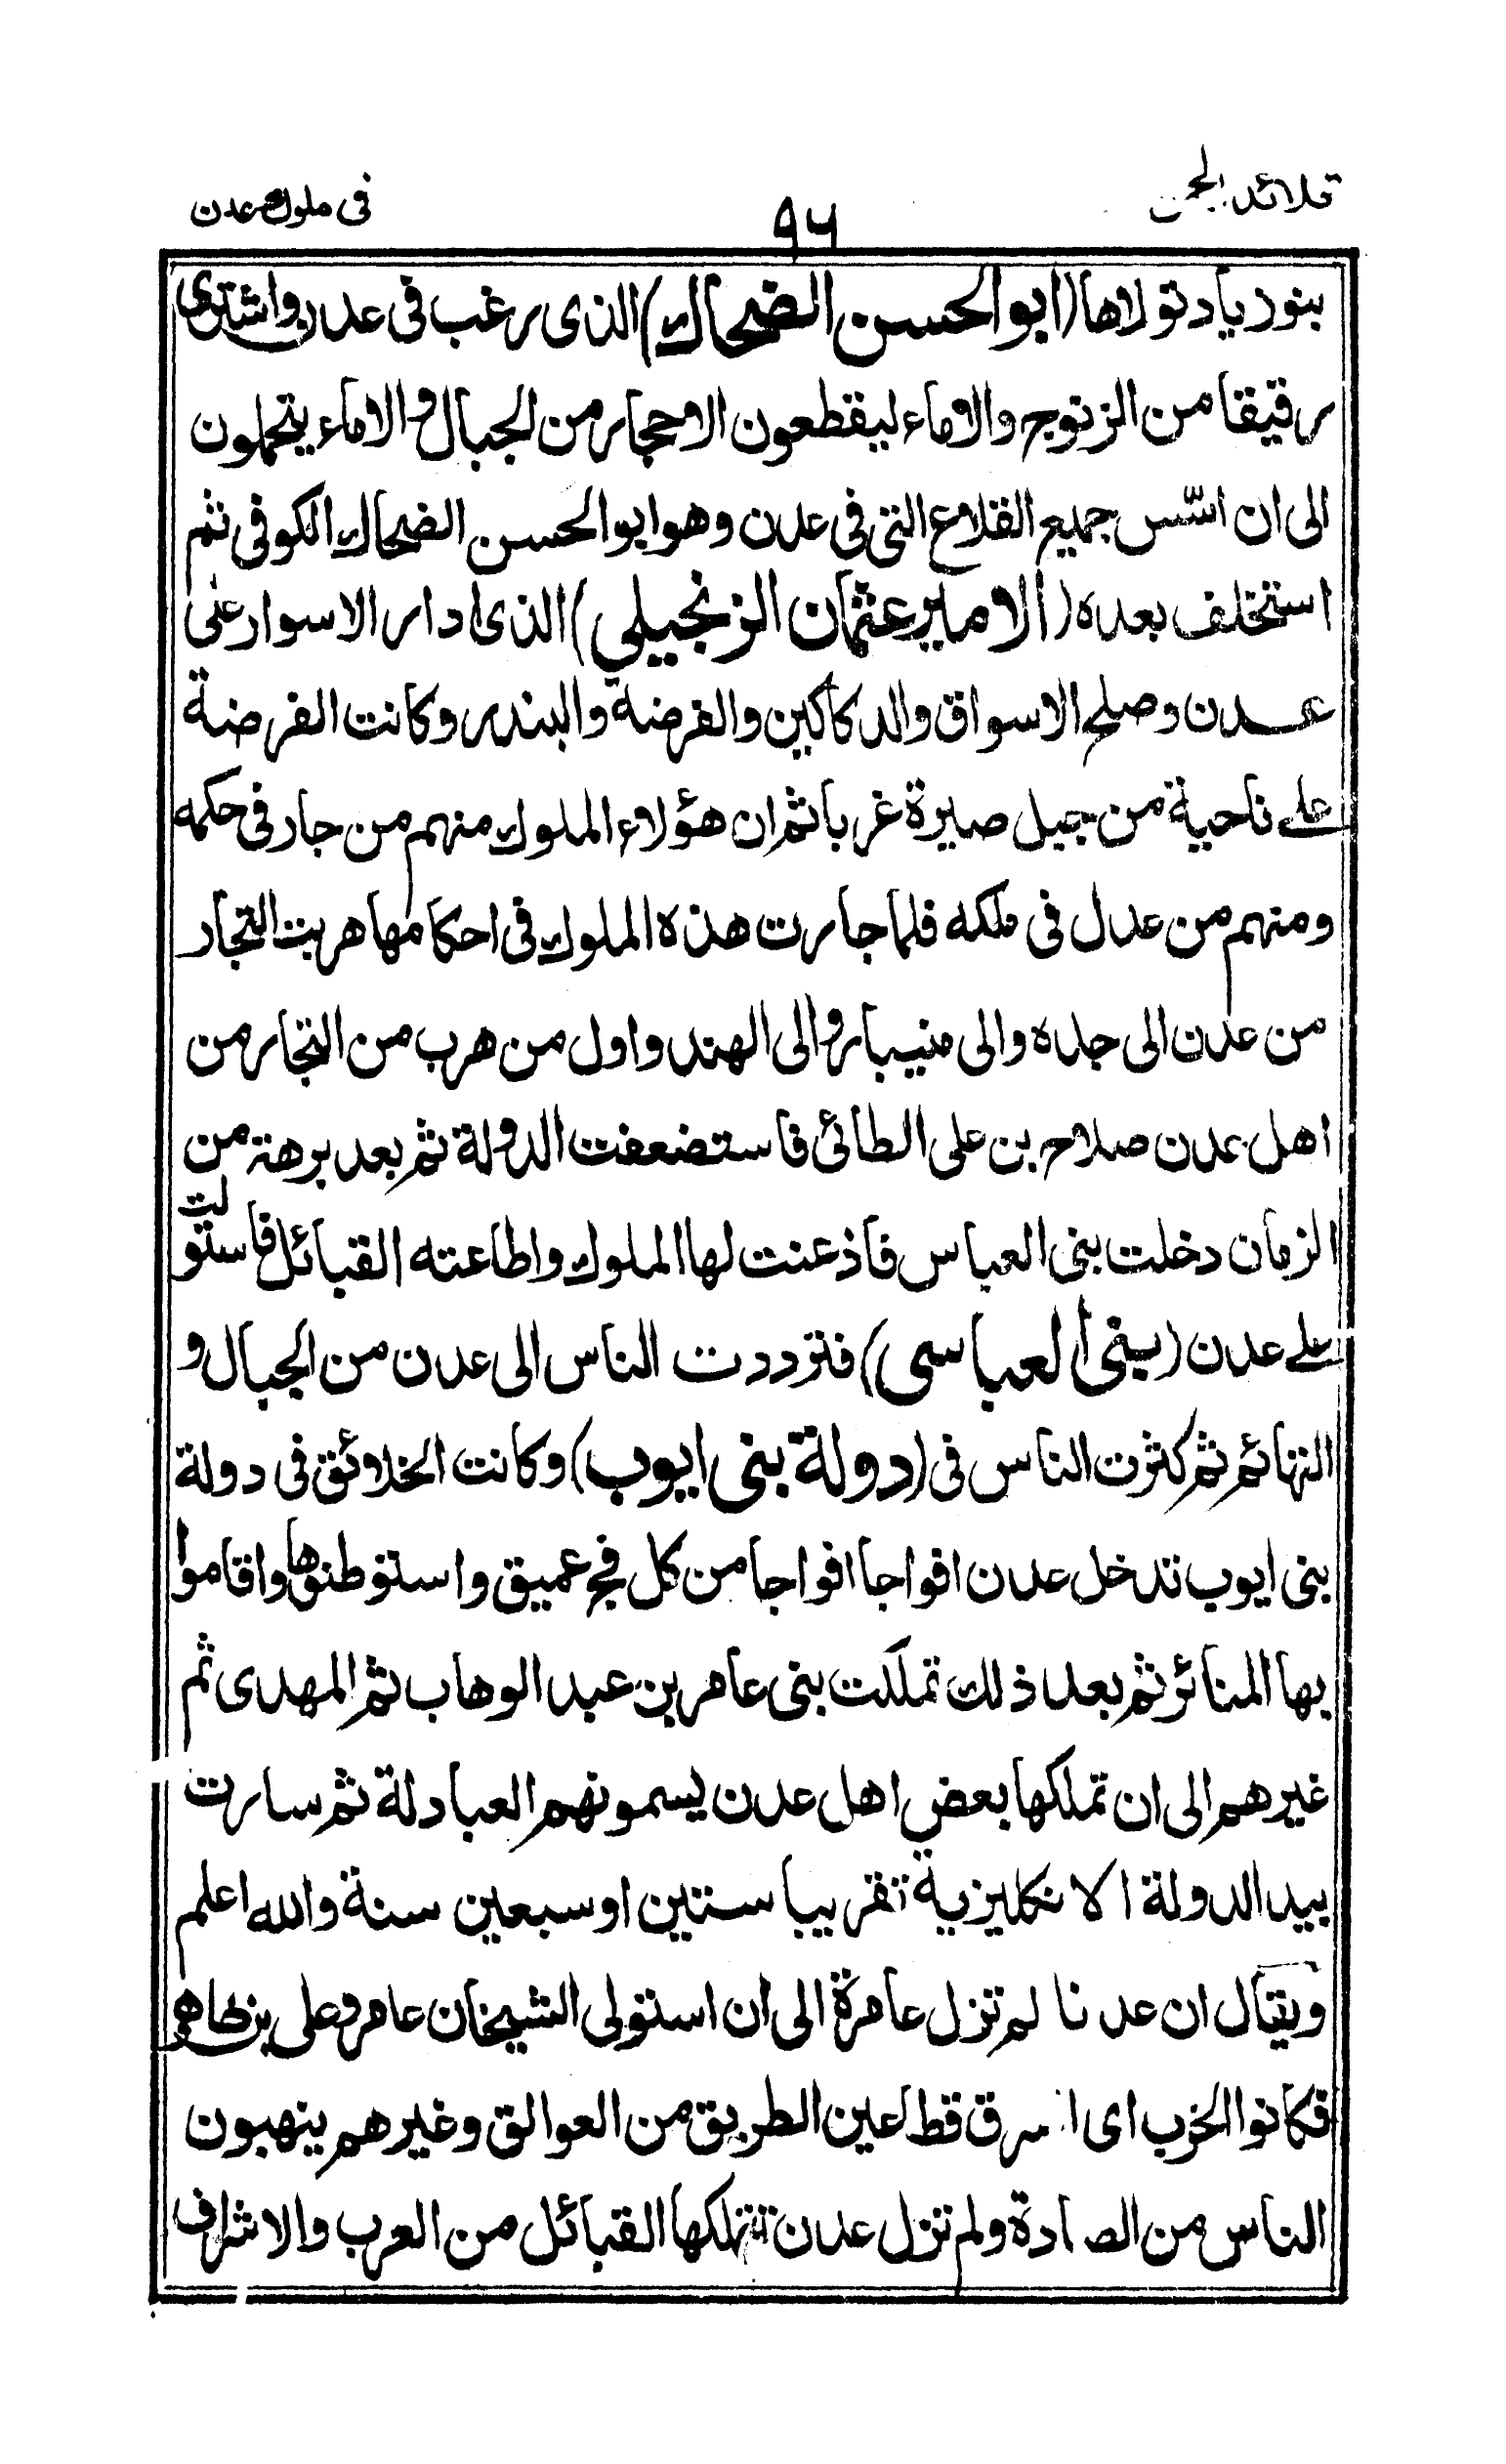 قلائد الجمن
٩٦
فى ملوك عدن
بنو زياد تولاها (ابو الحسن الضحاك) الذى رغب فى عدن واشترى
رقيقا من الزنوج والاماء ليقطعون الاحجار من الجبال والاماء يتحملون
الى ان اسّس جميع القلاع التى فى عدن وهو ابو الحسن الضحاك الكوفى ثم
استخلف بعده (الامير عثمان الزنجيلي) الذى ادار الاسوار على
عدن وصلح الاسواق والدكاكين والفرضة والبندر وكانت الفرضة
على ناحية من جبل صيرة غربا ثم ان هؤلاء الملوك منهم من جار فى حكمه
ومنهم من عدل فى ملكه فلما جارت هذه الملوك فى احكامها هربت التجار
من عدن الى جده والى منيبار والى الهند واول من هرب من التجار من
اهل عدن صلاح بن على الطائى فاستضعفت الدولة ثم بعد برهة من
الزمان دخلت بنى العباس فاذعنت لها الملوك واطاعته القبائل فاستولت
على عدن (بنى العباسى) فترددت الناس الى عدن من الجبال و
التهائم ثم كثرت الناس فى (دولة بنى ايوب) وكانت الخلائق فى دولة
بنى ايوب تدخل عدن افواجا افواجا من كل فج عميق واستوطنوها واقاموا
بها المنائر ثم بعد ذلك تملكت بنى عامر بن عبد الوهاب ثم المهدى ثم
غيرهم الى ان تملكها بعض اهل عدن يسمونهم العبادلة ثم سارت
بيد الدولة الانكليزية تقريبا ستين او سبعين سنة والله اعلم
ويقال ان عدنا لم تزل عامرة الى ان استولى الشيخان عامر وعلى بن طاهر
فكانوا الخرب اى سرق قطاعين الطريق من العوالق وغيرهم ينهبون
الناس من الصادة ولم تزل عدن تتملكها القبائل من العرب والاشراف